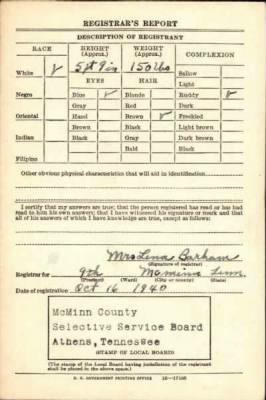 REGISTRAR'S REPORT
DESCRIPTION OF REGISTRANT
RACE HEIGHT (Approx.) WEIGHT (Approx.) COMPLEXION
White ✓ 5 ft 9 in 150 lbs Sallow
EYES HAIR Light
Negro Blue ✓ Blonde Ruddy ✓
Gray Red Dark
Oriental Hazel Brown ✓ Freckled
Brown Black Light brown
Indian Black Gray Dark brown
Bald Black
Filipino
Other obvious physical characteristics that will aid in identification
I certify that my answers are true; that the person registered has read or has had
read to him his own answers; that I have witnessed his signature or mark and that
all of his answers of which I have knowledge are true, except as follows:
Mrs Lena Barham
(Signature of registrar)
Registrar for 9th McMinn Tenn.
(Precinct) (Ward) (City or county) (State)
Date of registration Oct 16 1940
McMinn County
Selective Service Board
Athens, Tennessee
(STAMP OF LOCAL BOARD)
(The stamp of the Local Board having jurisdiction of the registrant
shall be placed in the above space.)
U. S. GOVERNMENT PRINTING OFFICE 16—17105